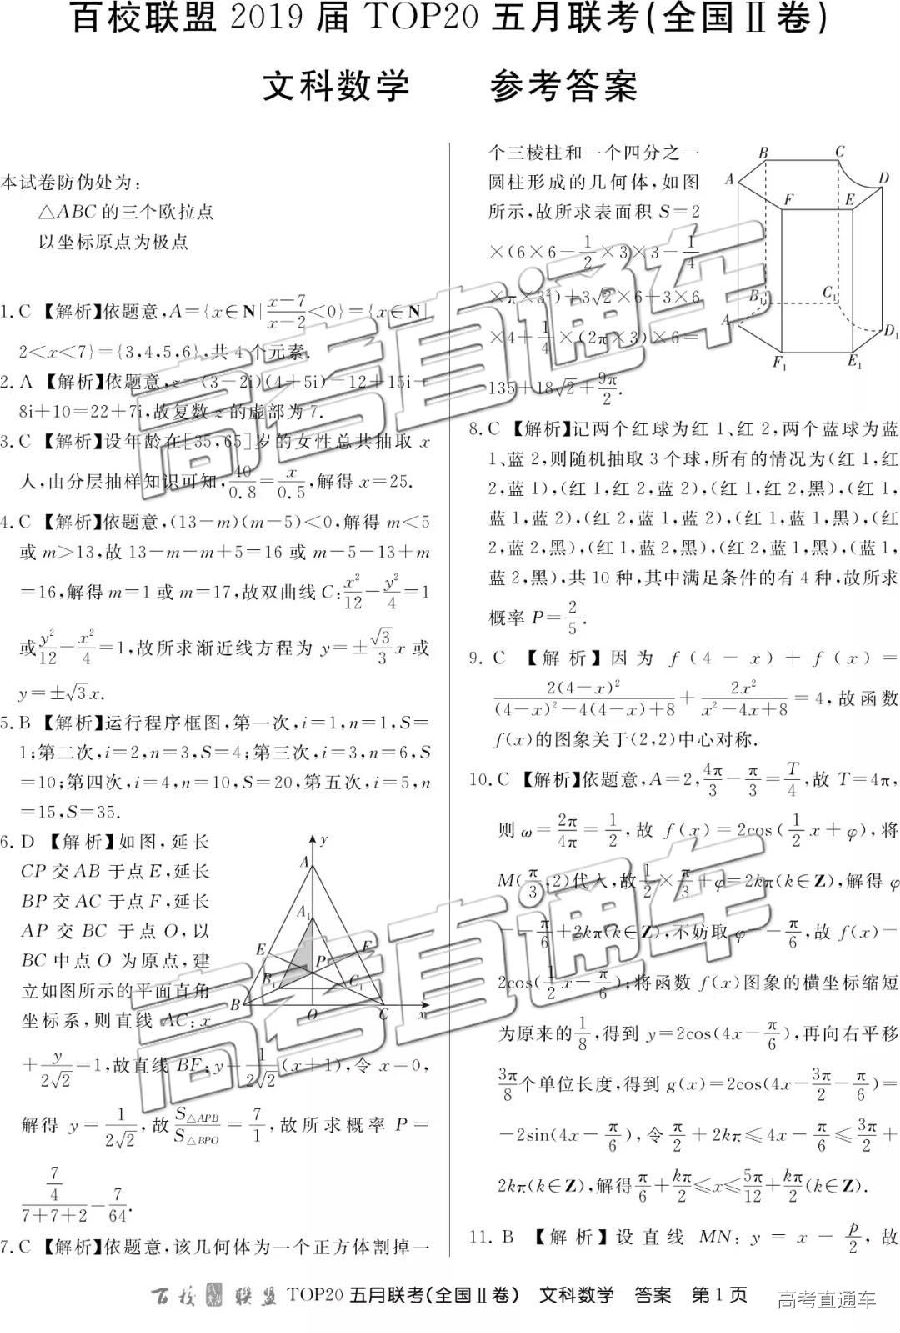 百校联盟 2019 届 TOP20 五月联考(全国Ⅱ卷)
文科数学 参考答案
本试卷防伪处为:
△ABC 的三个欧拉点
以坐标原点为极点
1.C 【解析】依题意,A={x∈N|(x-7)/(x-2)<0}={x∈N|
2<x<7}={3,4,5,6},共 4 个元素.
2.A 【解析】依题意,z=(3-2i)(4+5i)=12+15i-
8i+10=22+7i,故复数 z 的虚部为 7.
3.C 【解析】设年龄在[35,65]岁的女性总共抽取 x
人,由分层抽样知识可知,40/0.8=x/0.5,解得 x=25.
4.C 【解析】依题意,(13-m)(m-5)<0,解得 m<5
或 m>13,故 13-m-m+5=16 或 m-5-13+m
=16,解得 m=1 或 m=17,故双曲线 C:x²/12-y²/4=1
或y²/12-x²/4=1,故所求渐近线方程为 y=±√3/3 x 或
y=±√3x.
5.B 【解析】运行程序框图,第一次,i=1,n=1,S=
1;第二次,i=2,n=3,S=4;第三次,i=3,n=6,S
=10;第四次,i=4,n=10,S=20,第五次,i=5,n
=15,S=35.
6.D 【解析】如图,延长
CP 交 AB 于点 E,延长
BP 交 AC 于点 F,延长
AP 交 BC 于点 O,以
BC 中点 O 为原点,建
立如图所示的平面直角
坐标系,则直线 AC:x
+y/2√2=1,故直线 BF:y=1/2√2(x+1),令 x=0,
解得 y=1/2√2,故 S△APB/S△BPO=7/1,故所求概率 P=
(7/4)/(7+7+2)=7/64.
y
A
A₁
E
F
P
B₁
C₁
B
O
C
x
7.C 【解析】依题意,该几何体为一个正方体割掉一
个三棱柱和一个四分之一
圆柱形成的几何体,如图
所示,故所求表面积 S=2
×(6×6-1/2×3×3-1/4
×π×3²)+3√2×6+3×6
×4+1/4×(2π×3)×6=
135+18√2+9π/2.
B
C
A
D
F
E
B₁
C₁
A
D₁
F₁
E₁
8.C 【解析】记两个红球为红 1、红 2,两个蓝球为蓝
1、蓝 2,则随机抽取 3 个球,所有的情况为(红 1,红
2,蓝 1),(红 1,红 2,蓝 2),(红 1,红 2,黑),(红 1,
蓝 1,蓝 2),(红 2,蓝 1,蓝 2),(红 1,蓝 1,黑),(红
2,蓝 2,黑),(红 1,蓝 2,黑),(红 2,蓝 1,黑),(蓝 1,
蓝 2,黑),共 10 种,其中满足条件的有 4 种,故所求
概率 P=2/5.
9. C 【解析】因为 f(4-x)+f(x)=
2(4-x)²/((4-x)²-4(4-x)+8)+2x²/(x²-4x+8)=4,故函数
f(x)的图象关于(2,2)中心对称.
10.C 【解析】依题意,A=2,4π/3-π/3=T/4,故 T=4π,
则 ω=2π/4π=1/2,故 f(x)=2cos(1/2 x+φ),将
M(π/3,2)代入,故1/2×π/3+φ=2kπ(k∈Z),解得 φ
=-π/6+2kπ(k∈Z),不妨取 φ=-π/6,故 f(x)=
2cos(1/2 x-π/6);将函数 f(x)图象的横坐标缩短
为原来的1/8,得到 y=2cos(4x-π/6),再向右平移
3π/8个单位长度,得到 g(x)=2cos(4x-3π/2-π/6)=
-2sin(4x-π/6),令π/2+2kπ≤4x-π/6≤3π/2+
2kπ(k∈Z),解得π/6+kπ/2≤x≤5π/12+kπ/2(k∈Z).
11. B 【解析】设直线 MN:y=x-p/2,故
百校联盟 TOP20 五月联考(全国Ⅱ卷) 文科数学 答案 第 1 页
高考直通车
高考直通车
高考直通车